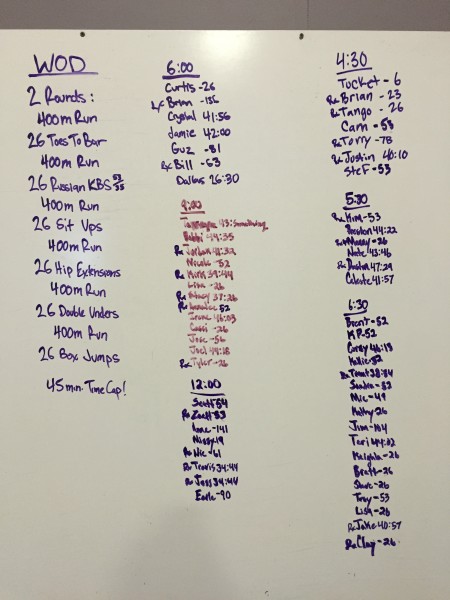 WOD
2 Rounds:
400m Run
26 Toes To Bar
400m Run
26 Russian KBS 53/35
400m Run
26 Sit Ups
400m Run
26 Hip Extensions
400m Run
26 Double Unders
400m Run
26 Box Jumps
45 min. Time Cap!
6:00
Curtis - 26
Rx Brian - 135
Crystal 41:56
Jamie 42:00
Guz - 81
Rx Bill - 63
Dallas 26:30
9:00
43:
Bobbi 44:35
Rx Jordan
Nicole - 52
Rx 39:44
Lisa - 26
Rx 37:26
Rx 52
Irene 46:03
Cassi - 26
Jose - 56
Joel 44:18
Rx Tyler - 26
12:00
Scott 54
Rx Zach 53
Anne - 141
Missy 49
Rx Nic - 61
Rx Travis 34:44
Rx Joss 34:44
Earle - 90
4:30
Tucket - 6
Rx Brian - 23
Rx Tango - 26
Cam - 53
Rx Torry - 78
Rx Justin 40:10
Stef - 53
5:30
Rx Kim - 53
Preston 44:22
Rx Manny - 26
Nate 43:46
Rx 47:29
Celeste 41:57
6:30
Brent - 52
KP - 52
Corey 46:13
Kallie 52
Rx Trent 38:84
Sandra - 52
Mic - 49
Kathy 26
Jim - 104
Teri 44:02
Kaigha - 26
Brett - 26
Shane - 26
Troy - 53
Lisa - 26
Rx Jake 40:57
Rx Clay - 26